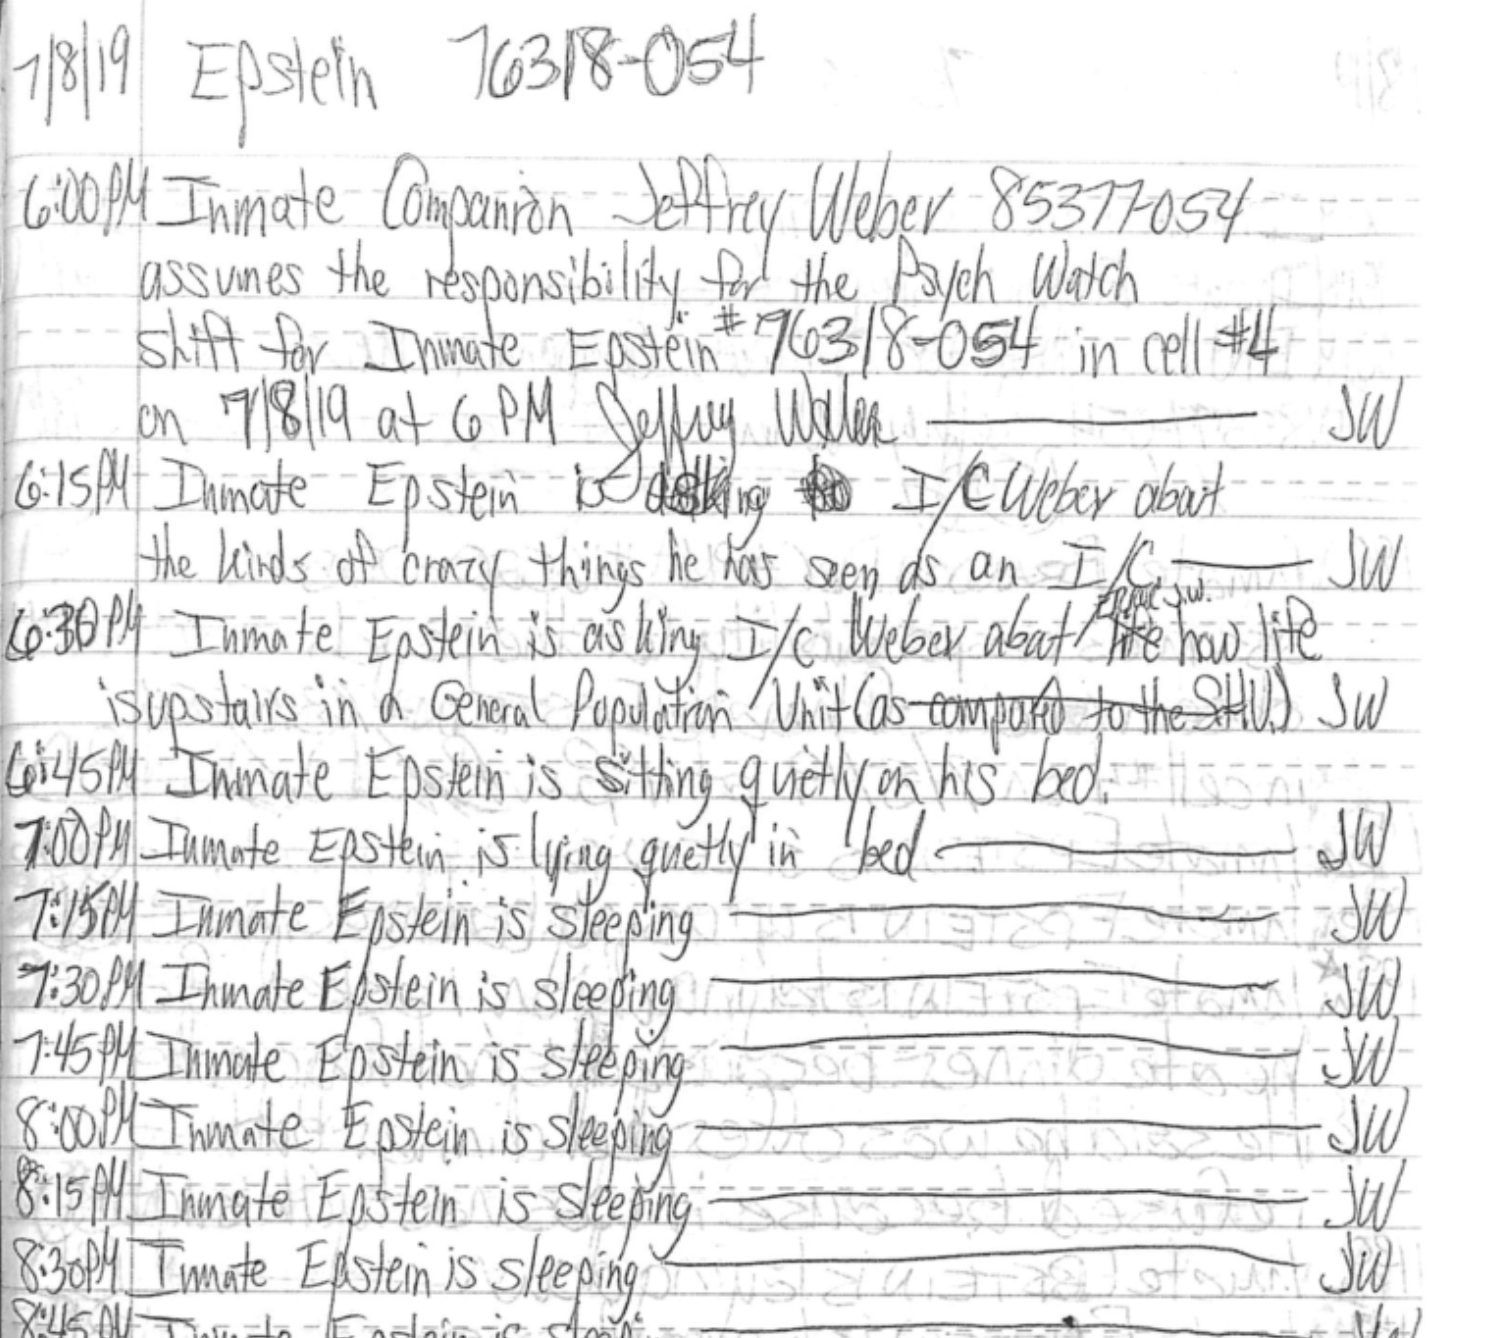 7/8/19 Epstein 76318-054
6:00PM Inmate Companion Jeffrey Weber 85377-054
assumes the responsibility for the Psych Watch
shift for Inmate Epstein #76318-054 in cell #4
on 7/8/19 at 6 PM Jeffrey Weber JW
6:15PM Inmate Epstein is asking I/C Weber about
the kinds of crazy things he has seen as an I/C. JW
J.W.
6:30PM Inmate Epstein is asking I/C Weber about how life
is upstairs in a General Population Unit (as compared to the SHU.) JW
6:45PM Inmate Epstein is sitting quietly on his bed.
7:00PM Inmate Epstein is lying quetly in bed JW
7:15PM Inmate Epstein is sleeping JW
7:30PM Inmate Epstein is sleeping JW
7:45PM Inmate Epstein is sleeping JW
8:00PM Inmate Epstein is sleeping JW
8:15PM Inmate Epstein is sleeping JW
8:30PM Inmate Epstein is sleeping JW
8:45PM Inmate Epstein is sleeping JW